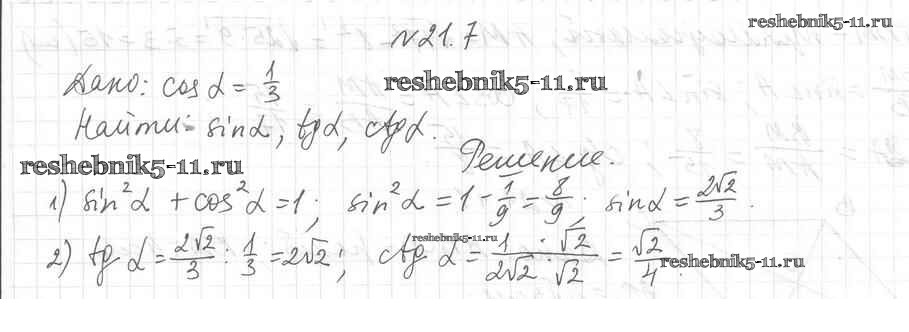 reshebnik5-11.ru
№21.7
Дано: cos α = 1/3 reshebnik5-11.ru
Найти: sinα, tgα, ctgα.
reshebnik5-11.ru Решение.
1) sin²α + cos²α = 1; sin²α = 1 - 1/9 = 8/9; sinα = 2√2/3.
reshebnik5-11.ru
2) tg α = 2√2/3 : 1/3 = 2√2; ctg α = 1·√2/2√2·√2 = √2/4. reshebnik5-11.ru